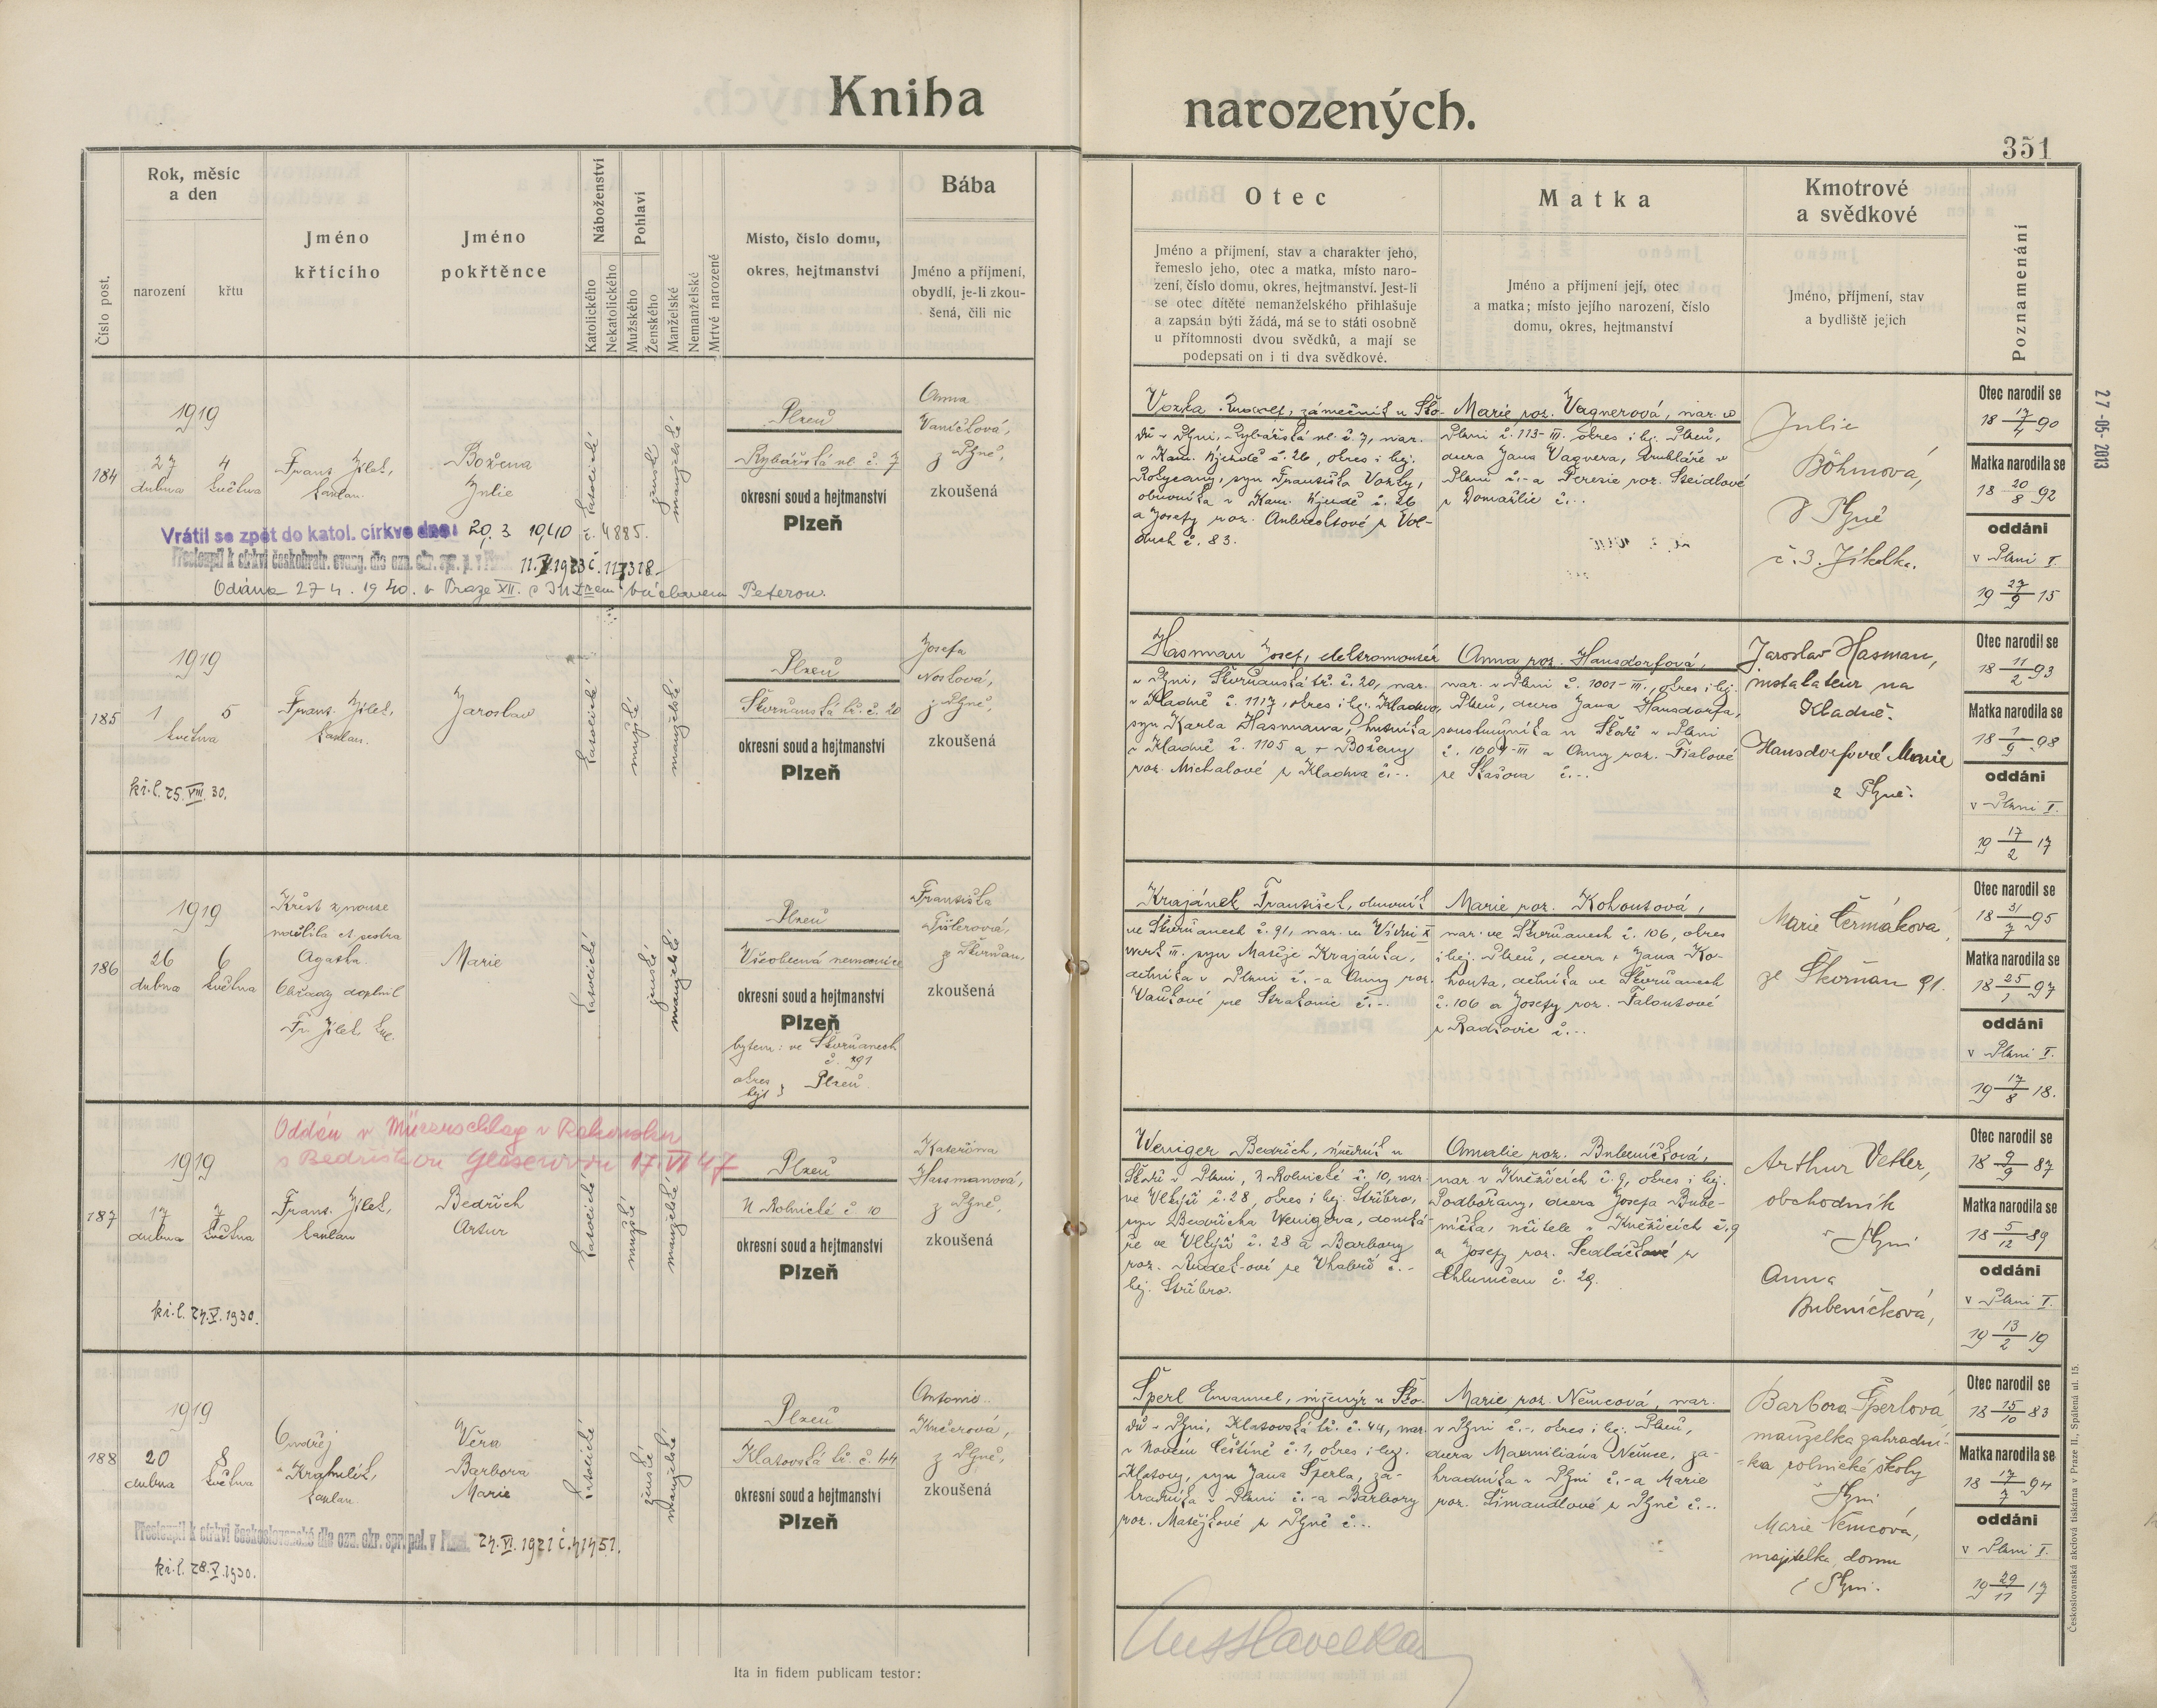 Kniha
narozených.
351
Číslo post.
Rok, měsíc
a den
narození
křtu
Jméno
křtícího
Jméno
pokřtěnce
Náboženství
Katolického
Nekatolického
Pohlaví
Mužského
Ženského
Manželské
Nemanželské
Mrtvě narozené
Místo, číslo domu,
okres, hejtmanství
Bába
Jméno a příjmení,
obydlí, je-li zkou-
šená, čili nic
Otec
Jméno a příjmení, stav a charakter jeho,
řemeslo jeho, otec a matka, místo naro-
zení, číslo domu, okres, hejtmanství. Jest-li
se otec dítěte nemanželského přihlašuje
a zapsán býti žádá, má se to státi osobně
u přítomnosti dvou svědků, a mají se
podepsati on i ti dva svědkové.
Matka
Jméno a příjmení její, otec
a matka; místo jejího narození, číslo
domu, okres, hejtmanství
Kmotrové
a svědkové
Jméno, příjmení, stav
a bydliště jejich
Poznamenání
27-05-2013
184
1919
27
dubna
4
května
Frant. Jílek,
kaplan.
Božena
Julie
katolické
ženské
manželské
Plzeň
Rybářská ul. č. 7
okresní soud a hejtmanství
Plzeň
Anna
Vaníčková,
z Plzně,
zkoušená
Vrátil se zpět do katol. církve dne: 20. 3. 1940 č. 4885.
Přestoupil k církvi českobratr. evang. dle ozn. okr. spr. p. v
Oddána 27 4. 1940. v Praze XII. s Václavem Peterou.
zámečník u Ško-
dů v Plzni, Rybářská ul. č. 7, nar.
v Kam. Újezdě č. 26, okres i hej.
Rokycany, syn Františka
obuvníka v Kam. Újezdě č. 26
a Josefy roz.
č. 83.
Marie roz. Vagnerová, nar. v
Plzni č. 113-III. okres i hej. Plzeň,
dcera Jana Vagnera, truhláře v
Plzni č.- a Terezie roz. Steidlové
z Domažlic č. -.
Julie
Böhmová,
v Plzně
č. 3. Jíkalka.
Otec narodil se
18 17/4 90
Matka narodila se
18 20/8 92
oddáni
v Plzni I.
19 27/9 15
185
1919
1
května
5
Frant. Jílek,
kaplan.
Jaroslav
katolické
mužské
manželské
kř.l. 25. VIII. 30.
Plzeň
Škvrňanská tř. č. 20
okresní soud a hejtmanství
Plzeň
Josefa
Nosková,
z Plzně,
zkoušená
Hasman Josef, elektromontér
v Plzni, Škvrňanská tř. č. 20, nar.
v Kladně č. 1117, okres i hej. Kladno,
syn Karla Hasmana, hutníka
v Kladně č. 1105 a + Boženy
roz. Michalové z Kladna č. -.
Anna roz. Hansdorfová,
nar. v Plzni č. 1001-III., okres i hej.
Plzeň, dcera Jana Hansdorfa,
soustružníka u Škodů v Plzni
č. 1004-III a Anny roz. Fialové
ze Stašova č. -.
Jaroslav Hasman,
instalateur na
Kladně.
Hansdorfová Marie
z Plzně.
Otec narodil se
18 11/2 93
Matka narodila se
18 1/9 98
oddáni
v Plzni I.
19 17/2 17
186
1919
26
dubna
6
května
Křest z nouze
udělila ct. sestra
Agatha.
Obřady doplnil
Fr. Jílek, kpl.
Marie
katolické
ženské
manželské
Plzeň
Všeobecná nemocnice
okresní soud a hejtmanství
Plzeň
bytem: ve Škvrňanech
č. 91
okres
hejt } Plzeň.
Františka
Tišlerová,
ze Škvrňan,
zkoušená
Krajánek František, obuvník
ve Škvrňanech č. 91, nar. ve Vídni X
syn Matěje Krajánka,
dělníka v Plzni č. - a Anny roz.
Vaňkové ze Strakonic č. -.
Marie roz. Kohoutová,
nar. ve Škvrňanech č. 106, okres
i hej. Plzeň, dcera + Jana Ko-
houta, dělníka ve Škvrňanech
č. 106 a Josefy roz. Faloutové
z Radkovic č. -.
Marie Čermáková,
ze Škvrňan 91.
Otec narodil se
18 31/7 95
Matka narodila se
18 25/1 97
oddáni
v Plzni I.
19 17/8 18.
187
Oddán v Mürzuschlag v Rakousku
s Bedřiškou Glaserovou 17. VI 47
1919
17
dubna
7
května
Frant. Jílek,
kaplan
Bedřich
Artur
katolické
mužské
manželské
kř.l. 27. V. 1930.
Plzeň
U Rolnické č 10
okresní soud a hejtmanství
Plzeň
Kateřina
Hassmanová,
z Plzně,
zkoušená
Weniger Bedřich, úředník u
Škodů v Plzni, U Rolnické č. 10, nar.
ve č. 28, okres i hej. Stříbro,
syn Bedřicha Wenigra, domká-
ře ve č. 28 a Barbory
hej. Stříbro.
Amalie roz. Bubeníčková,
nar. v Kněžicích č. 9, okres i hej.
Podbořany, dcera Josefa Bube-
níčka, učitele v Kněžicích č. 9
a Josefy roz. Sedláčkové z
Chlumčan č. 29.
Arthur Vetter,
obchodník
v Plzni
Anna
Bubeníčková,
Otec narodil se
18 9/9 87
Matka narodila se
18 5/12 89
oddáni
v Plzni I.
19 13/2 19
188
1919
20
dubna
8
května
Ondřej
kaplan.
Věra
Barbora
Marie
katolické
ženské
manželské
Přestoupil k církvi československé dle ozn. okr. spr. pol. v Plzni.
kř.l. 28. V. 1930.
Plzeň
Klatovská tř. č. 44
okresní soud a hejtmanství
Plzeň
Antonie
Kučerová,
z Plzně,
zkoušená
Šperl Emanuel, inženýr u Ško-
dů v Plzni, Klatovská tř. č. 44, nar.
v Novém Čestíně č. 1, okres i hej.
Klatovy, syn Jana Šperla, za-
hradníka v Plzni č. - a Barbory
roz. Matějkové z Plzně č. -.
Marie roz. Němcová, nar.
v Plzni č. -, okres i hej. Plzeň,
dcera Maxmiliána Němce, za-
hradníka v Plzni č. - a Marie
roz. Šimandlové z Plzně č. -.
Barbora Šperlová,
manželka zahradní-
ka rolnické školy
v Plzni
Marie Němcová,
majitelka domu
v Plzni.
Otec narodil se
18 15/10 83
Matka narodila se
18 17/7 94
oddáni
v Plzni I.
19 29/11 17
Ita in fidem publicam testor:
Českoslovanská akciová tiskárna v Praze II., Spálená ul. 15.